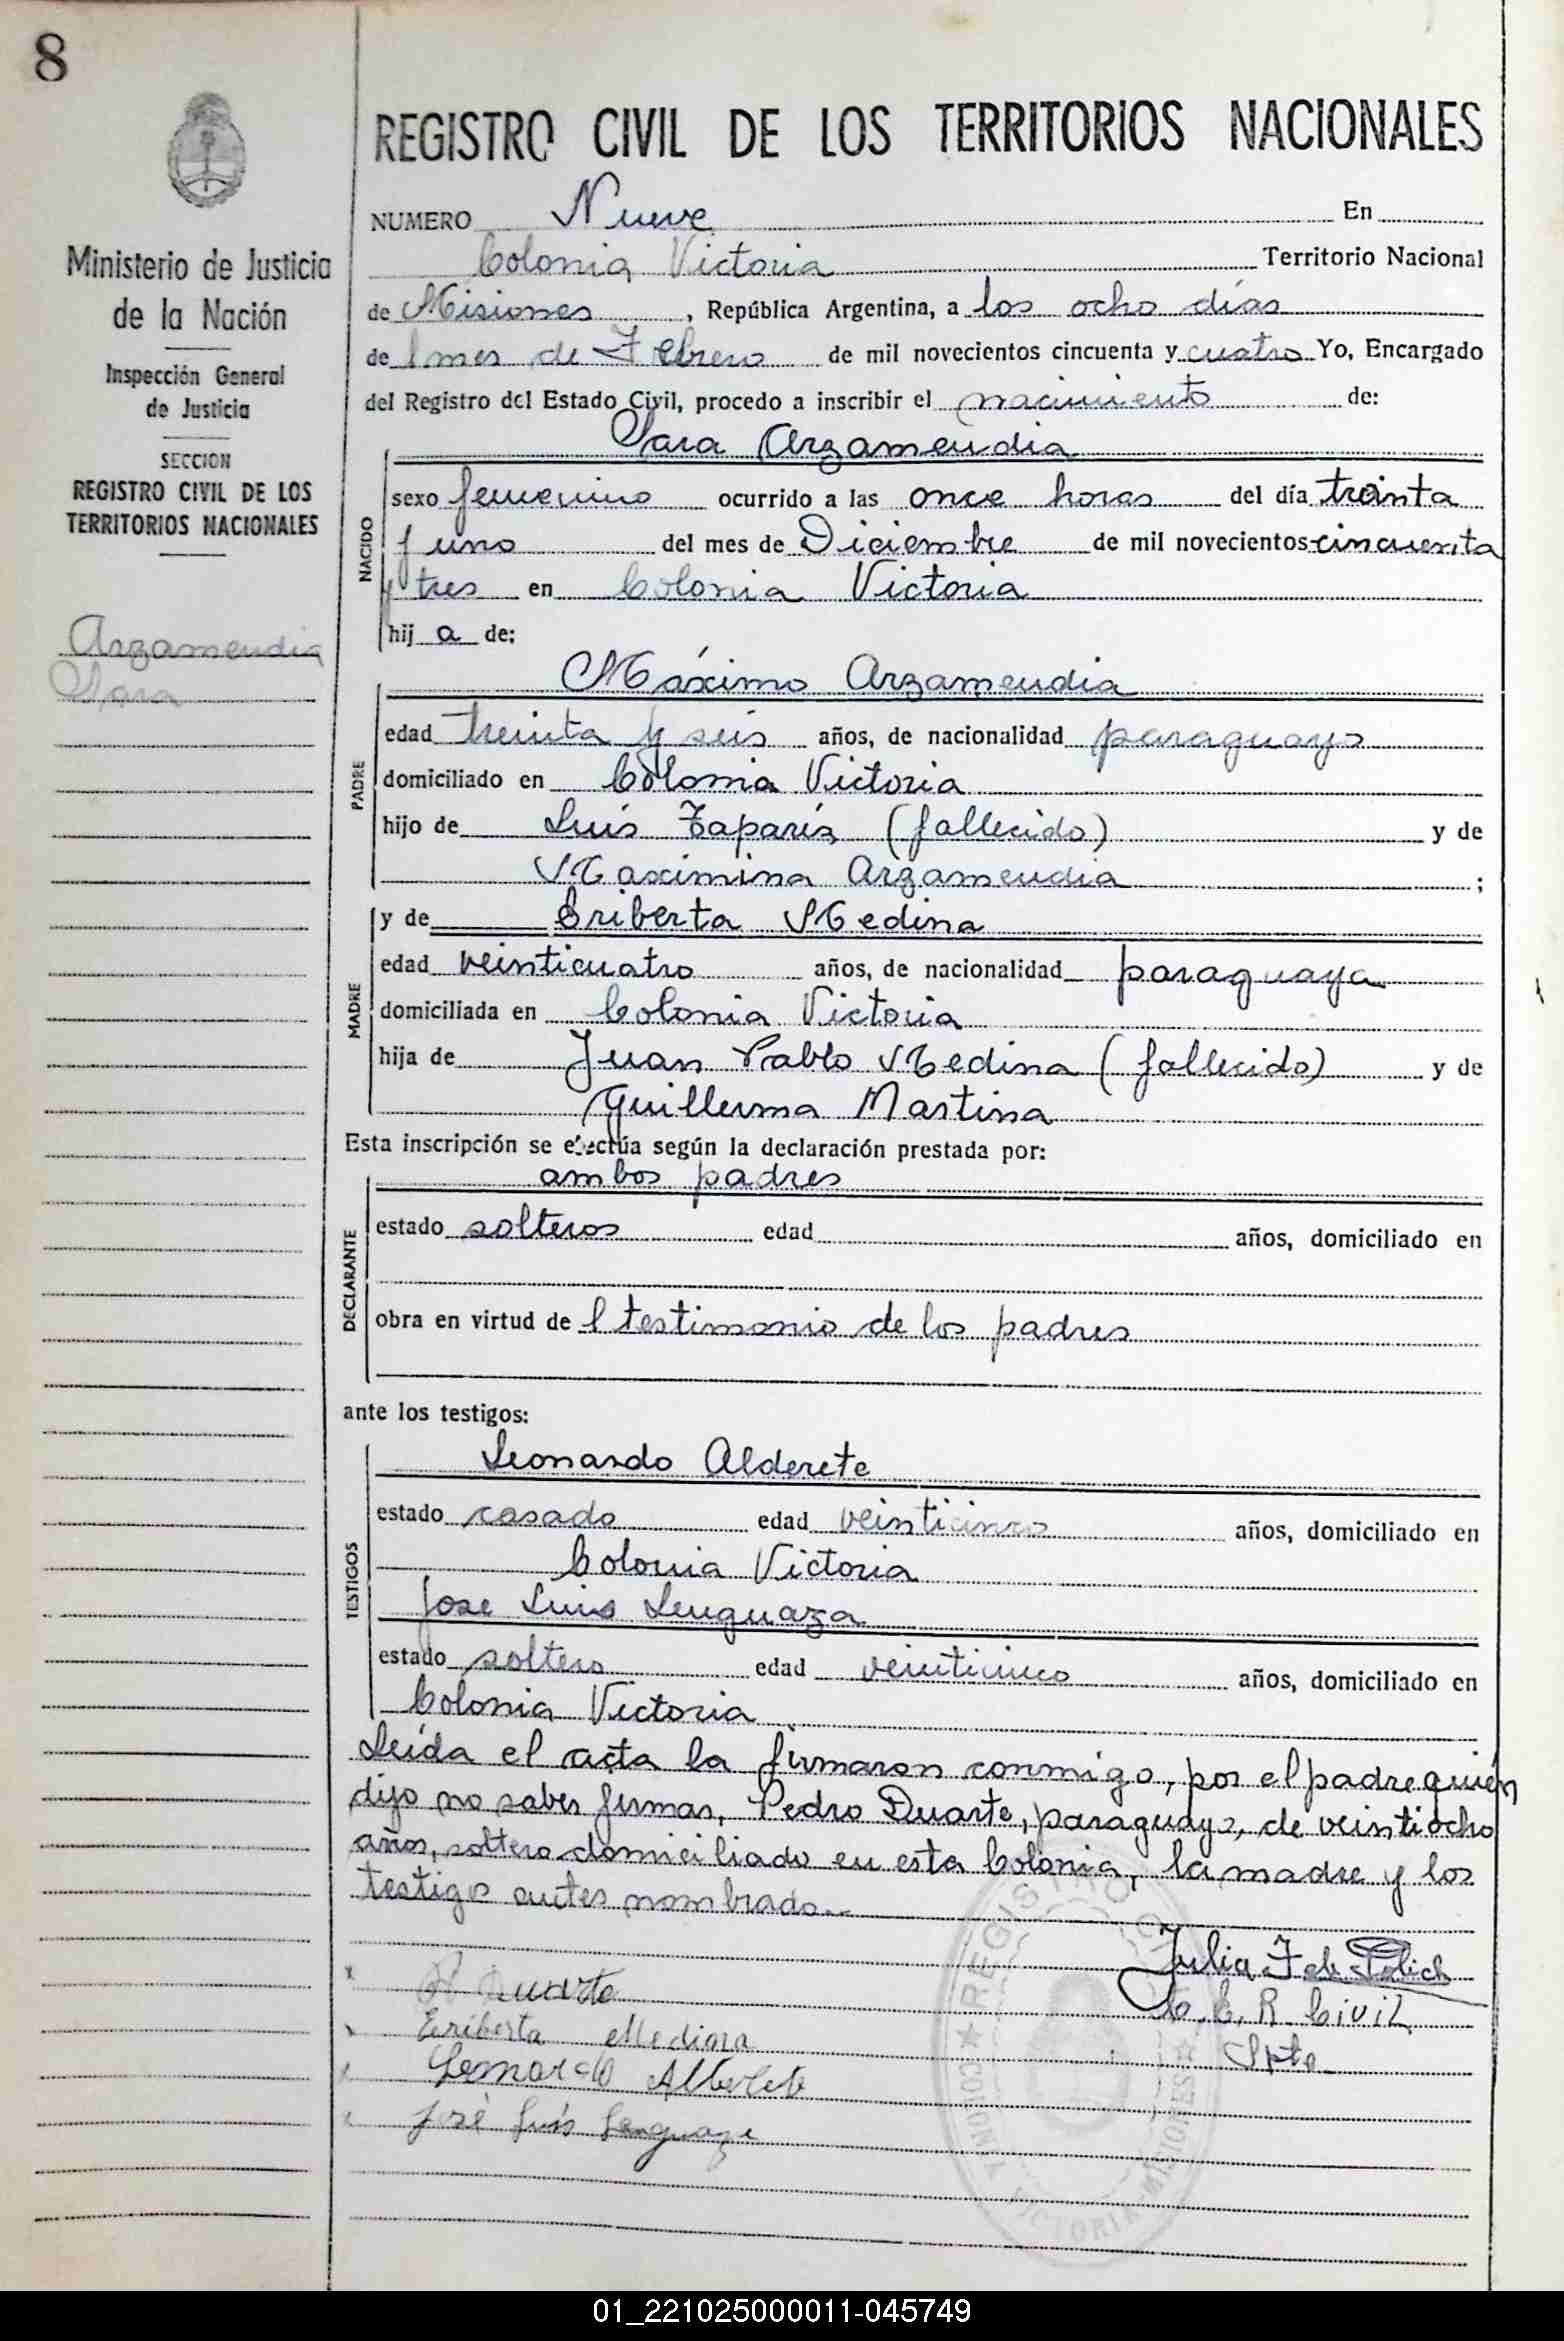 8
Ministerio de Justicia
de la Nación
Inspección General
de Justicia
SECCION
REGISTRO CIVIL DE LOS
TERRITORIOS NACIONALES
Arzamendia
Sara
REGISTRO CIVIL DE LOS TERRITORIOS NACIONALES
NUMERO Nueve En
Colonia Victoria Territorio Nacional
de Misiones, República Argentina, a los ocho días
del mes de Febrero de mil novecientos cincuenta y cuatro Yo, Encargado
del Registro del Estado Civil, procedo a inscribir el nacimiento de:
Sara Arzamendia
NACIDO
sexo femenino ocurrido a las once horas del día treinta
y uno del mes de Diciembre de mil novecientos cincuenta
y tres en Colonia Victoria
hij a de:
Máximo Arzamendia
PADRE
edad treinta y seis años, de nacionalidad paraguayo
domiciliado en Colonia Victoria
hijo de Luis (fallecido) y de
Maximina Arzamendia ;
y de Eriberta Medina
MADRE
edad veinticuatro años, de nacionalidad paraguaya
domiciliada en Colonia Victoria
hija de Juan Pablo Medina (fallecido) y de
Guillerma Martina
Esta inscripción se efectúa según la declaración prestada por:
ambos padres
DECLARANTE
estado solteros edad años, domiciliado en
obra en virtud del testimonio de los padres
ante los testigos:
Leonardo Alderete
TESTIGOS
estado casado edad veinticinco años, domiciliado en
Colonia Victoria
Jose Luis Lenguaza
estado soltero edad veinticinco años, domiciliado en
Colonia Victoria
Leída el acta la firmaron conmigo, por el padre quién
dijo no saber firmar, Pedro Duarte, paraguayo, de veintiocho
años, soltero domiciliado en esta Colonia, la madre y los
testigo antes nombrado.-
P Duarte
Eriberta Medina
Leonardo Alderete
José Luis Lenguaza
Julia F de
E. R. Civil
Spte
REGISTRO CIVIL
COLONIA VICTORIA - MISIONES
01_221025000011-045749